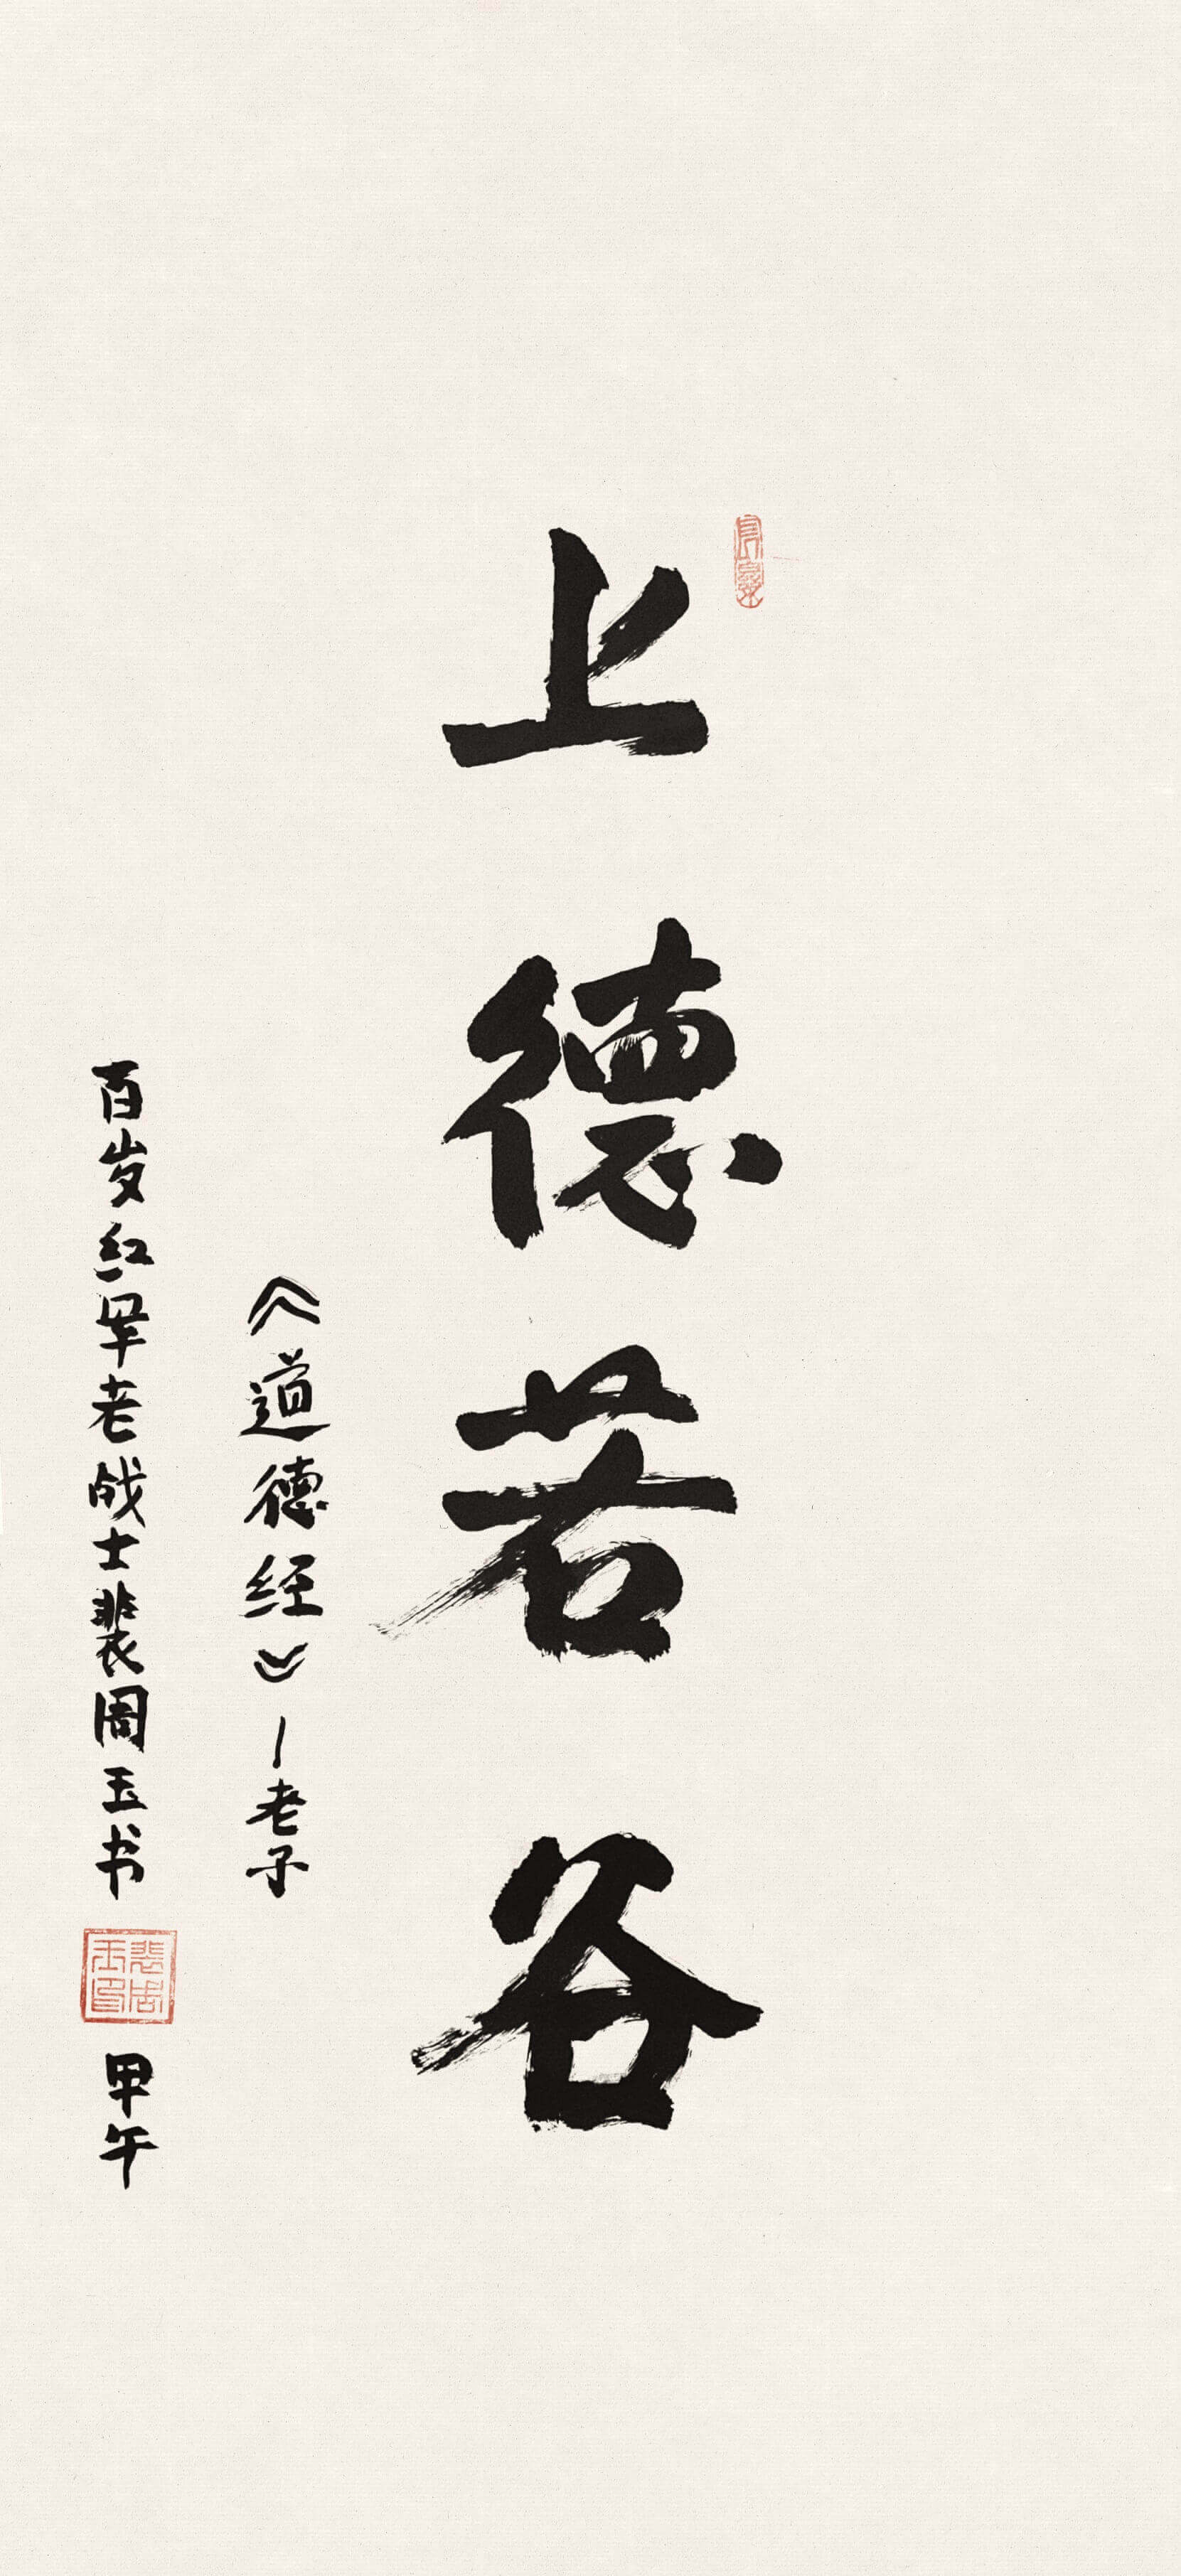 上德若谷
《道德经》—老子
百岁红军老战士裴周玉书
裴周玉印
甲午